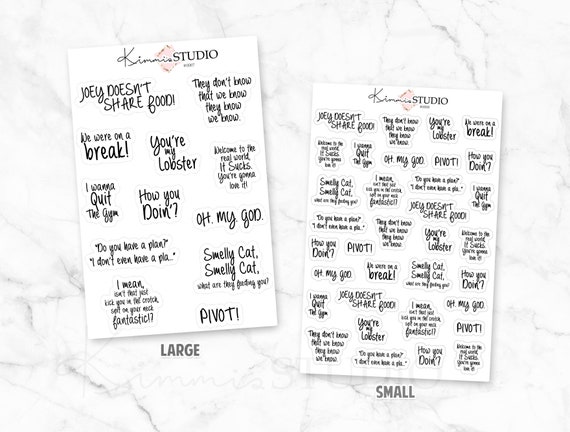 Kimmie STUDIO
JOEY DOESN'T
SHARE FOOD!
They don't know
that we know
they know
we know.
We were on a
break!
You're
my
Lobster
Welcome to the
real world,
It Sucks.
you're gonna
love it!
I wanna
Quit
The Gym
How you
Doin'?
OH. MY. GOD.
"Do you have a plan?"
"I don't even have a pla..."
Smelly Cat,
Smelly Cat,
what are they feeding you?
I mean,
isn't that just
kick you in the crotch,
spit on your neck
fantastic!?
PIVOT!
LARGE
Kimmie STUDIO
JOEY DOESN'T
SHARE FOOD!
They don't know
that we know
they know
we know.
You're
my
Lobster
We were on a
break!
Welcome to the
real world,
It Sucks.
you're gonna
love it!
I wanna
Quit
The Gym
OH. MY. GOD.
PIVOT!
How you
Doin'?
Smelly Cat,
Smelly Cat,
what are they feeding you?
I mean,
isn't that just
kick you in the crotch,
spit on your neck
fantastic!?
JOEY DOESN'T
SHARE FOOD!
I wanna
Quit
The Gym
"Do you have a plan?"
"I don't even have a pla..."
They don't know
that we know
they know
we know.
You're
my
Lobster
Welcome to the
real world,
It Sucks.
you're gonna
love it!
How you
Doin'?
PIVOT!
OH. MY. GOD.
We were on a
break!
Smelly Cat,
Smelly Cat,
what are they feeding you?
How you
Doin'?
I wanna
Quit
The Gym
JOEY DOESN'T
SHARE FOOD!
I mean,
isn't that just
kick you in the crotch,
spit on your neck
fantastic!?
OH. MY. GOD.
They don't know
that we know
they know
we know.
You're
my
Lobster
PIVOT!
"Do you have a plan?"
"I don't even have a pla..."
How you
Doin'?
Welcome to the
real world,
It Sucks.
you're gonna
love it!
SMALL
Kimmie STUDIO